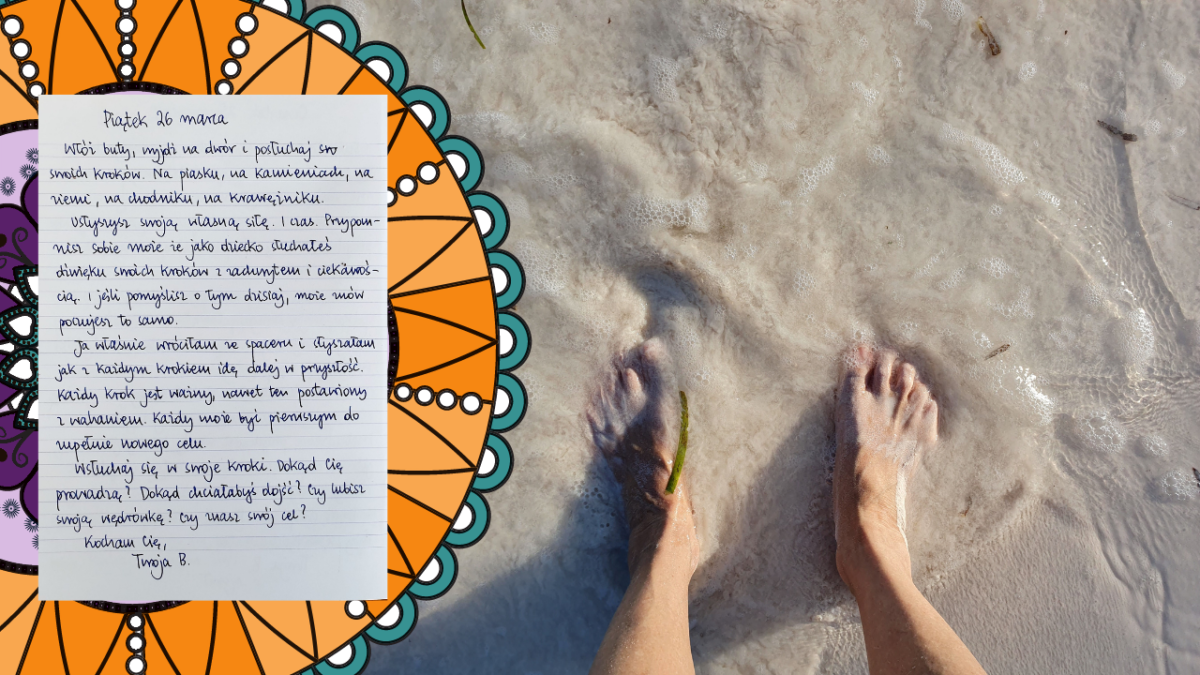 Piątek 26 marca
Włóż buty, wyjdź na dwór i posłuchaj sw
swoich kroków. Na piasku, na kamieniach, na
ziemi, na chodniku, na krawężniku.
Usłyszysz swoją własną siłę. I czas. Przypom-
nisz sobie może że jako dziecko słuchałeś
dźwięku swoich kroków z zachwytem i ciekawoś-
cią. I jeśli pomyślisz o tym dzisiaj, może znów
poczujesz to samo.
Ja właśnie wróciłam ze spaceru i słyszałam
jak z każdym krokiem idę dalej w przyszłość.
Każdy krok jest ważny, nawet ten postawiony
z wahaniem. Każdy może być pierwszym do
zupełnie nowego celu.
Wsłuchaj się w swoje kroki. Dokąd Cię
prowadzą? Dokąd chciałabyś dojść? Czy lubisz
swoją wędrówkę? Czy znasz swój cel?
Kocham Cię,
Twoja B.